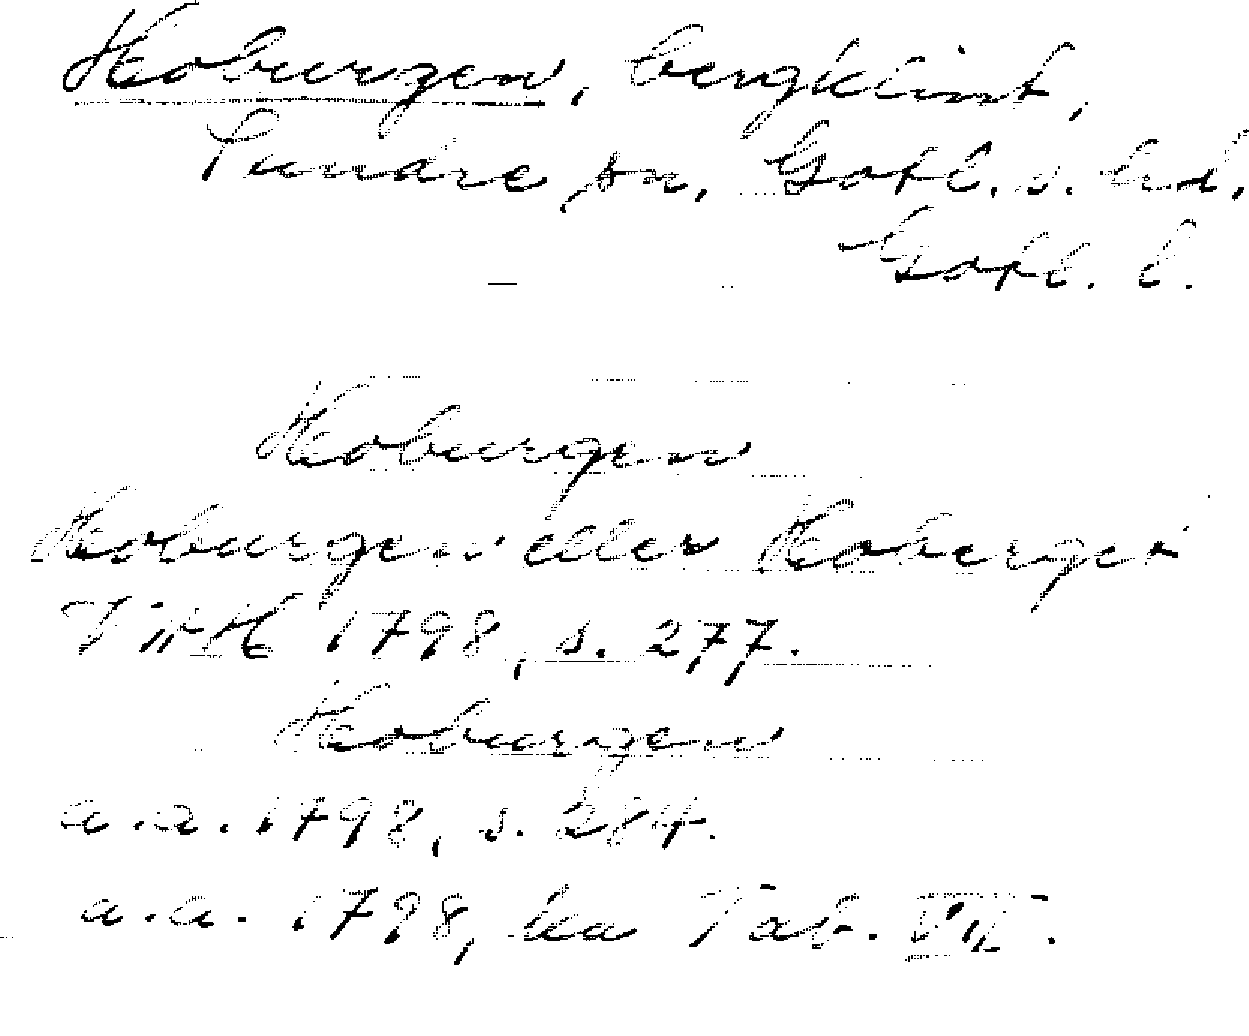 Hoburgen, bergklint,
Sundre sn, Gotl. s. hd,
Gotl. l.
Hoburgen
Hoburgen eller Hobergen
1798, s. 277.
Hoburgen
a.a. 1798, s. 284.
a.a. 1798, Tab. VII.